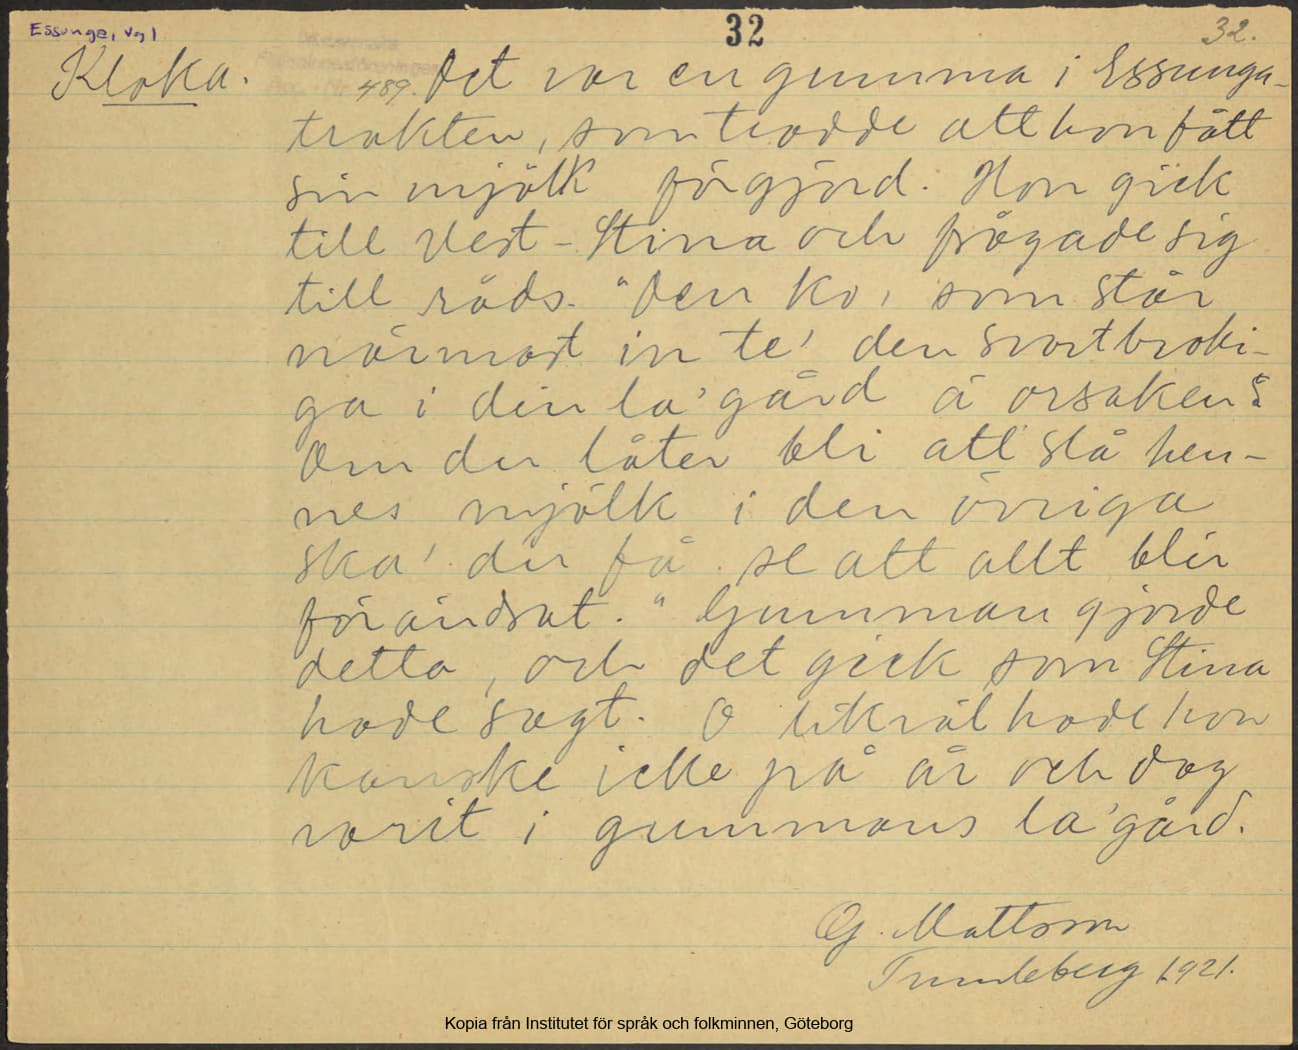 Essunga, Vgl
32
32.
Kloka.
489. Det var en gumma i Essunga-
trakten, som trodde att hon fått
sin mjölk förgjord. Hon gick
till Vest-Stina och frågade sig
till råds. "Den ko, som står
närmast in te' den svartbroki-
ga i din la'gård ä orsaken.
Om du låter bli att slå hen-
nes mjölk i den övriga
ska' du få se att allt blir
förändrat." Gumman gjorde
detta, och det gick som Stina
hade sagt. O likväl hade hon
kanske icke på år och dag
varit i gummans la'gård.
G. Mattsson
1921.
Kopia från Institutet för språk och folkminnen, Göteborg